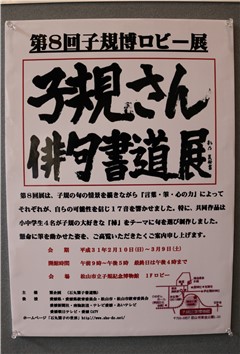 第8回子規博ロビー展
子規さん
俳句書道展
第8回展は、子規の句の情景を描きながら「言葉・筆・心の力」によって
それぞれが、自らの可能性を信じ17音を響かせました。特に、共同作品は
小中学生4名が子規の大好きな「柿」をテーマに句を選び制作しました。
懸命に筆を動かした姿を、ご高覧いただきたくご案内申し上げます。
会 期 平成31年2月19日(日)~3月9日(土)
開館時間 午前9時~午後5時 最終日は午後4時まで
会 場 松山市立子規記念博物館 1Fロビー
主 催
後 援 愛媛県・愛媛県教育委員会・松山市・松山市教育委員会
ホームページ